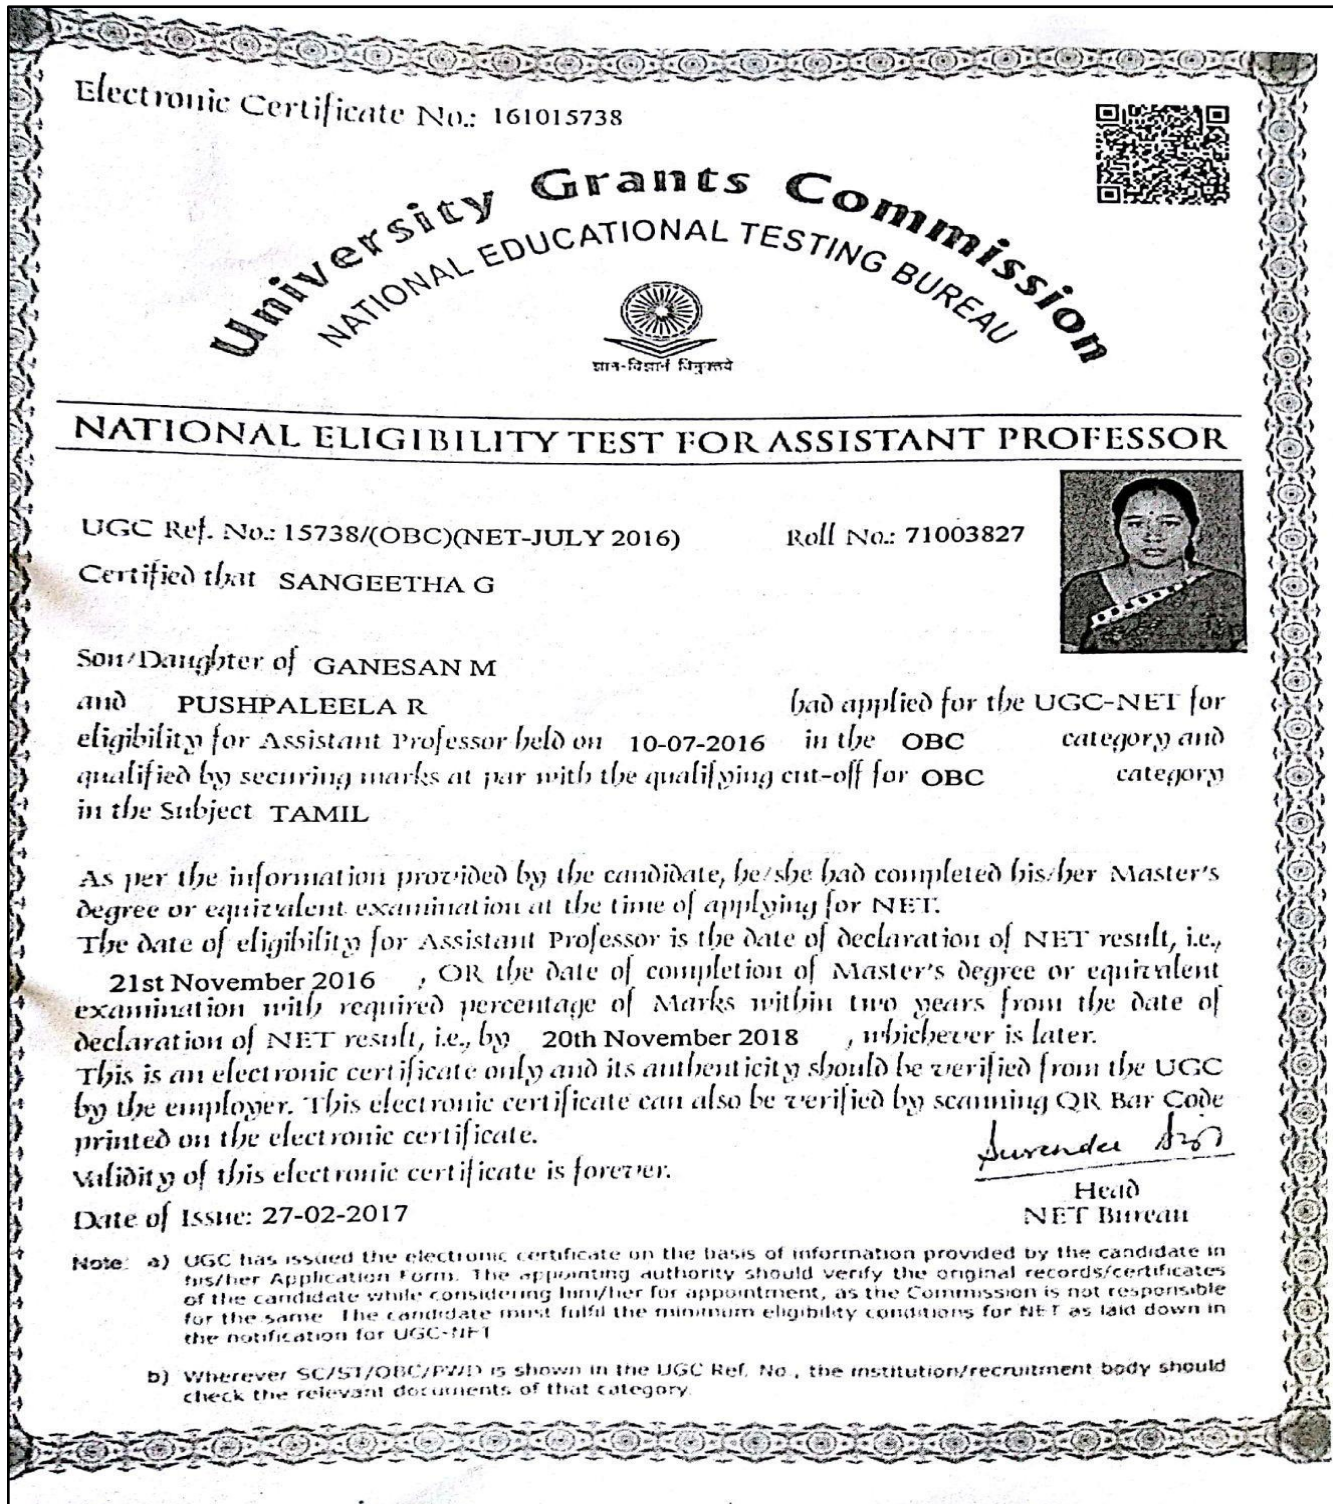 Electronic Certificate No.: 161015738
University Grants Commission
NATIONAL EDUCATIONAL TESTING BUREAU
ज्ञान-विज्ञानं विमुक्तये
NATIONAL ELIGIBILITY TEST FOR ASSISTANT PROFESSOR
UGC Ref. No.: 15738/(OBC)(NET-JULY 2016) Roll No.: 71003827
Certified that SANGEETHA G
Son/Daughter of GANESAN M
and PUSHPALEELA R had applied for the UGC-NET for
eligibility for Assistant Professor held on 10-07-2016 in the OBC category and
qualified by securing marks at par with the qualifying cut-off for OBC category
in the Subject TAMIL
As per the information provided by the candidate, he/she had completed his/her Master's
degree or equivalent examination at the time of applying for NET.
The date of eligibility for Assistant Professor is the date of declaration of NET result, i.e.,
21st November 2016 , OR the date of completion of Master's degree or equivalent
examination with required percentage of Marks within two years from the date of
declaration of NET result, i.e., by 20th November 2018 , whichever is later.
This is an electronic certificate only and its authenticity should be verified from the UGC
by the employer. This electronic certificate can also be verified by scanning QR Bar Code
printed on the electronic certificate.
Validity of this electronic certificate is forever.
Surender
Head
Date of Issue: 27-02-2017 NET Bureau
Note: a) UGC has issued the electronic certificate on the basis of information provided by the candidate in
his/her Application Form. The appointing authority should verify the original records/certificates
of the candidate while considering him/her for appointment, as the Commission is not responsible
for the same. The candidate must fulfil the minimum eligibility conditions for NET as laid down in
the notification for UGC-NET
b) Wherever SC/ST/OBC/PWD is shown in the UGC Ref. No., the institution/recruitment body should
check the relevant documents of that category.